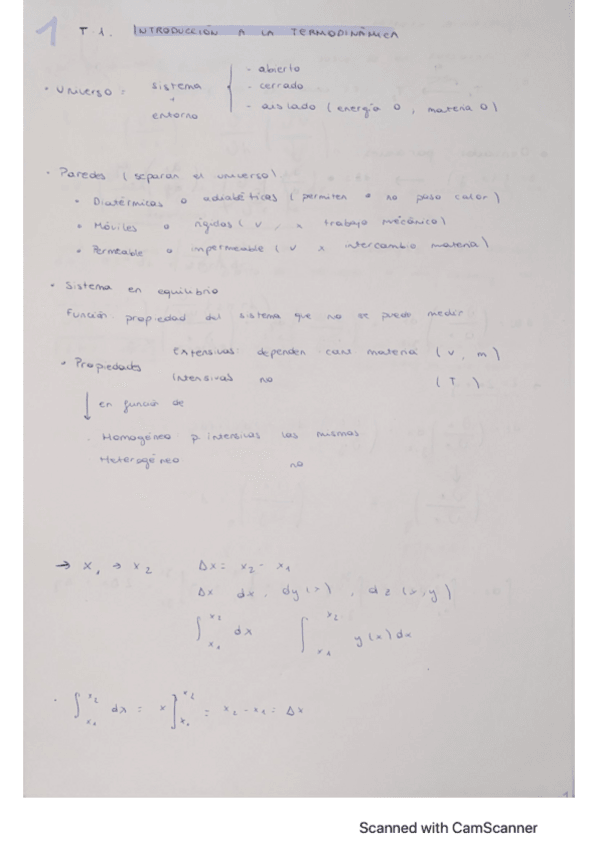 1 T 1. INTRODUCCIÓN A LA TERMODINÁMICA
· Universo: sistema + entorno
- abierto
- cerrado
- aislado (energía 0, materia 0)
· Paredes (separan el universo)
· Diatérmicas o adiabáticas (permiten o no paso calor)
· Móviles o rígidas (v, x trabajo mecánico)
· Permeable o impermeable (v x intercambio materia)
· Sistema en equilibrio
Función: propiedad del sistema que no se puede medir
· Propiedades Extensivas: dependen cant materia (v, m)
Intensivas no (T)
↓ en función de
· Homogéneo p. intensivas las mismas
Heterogéneo no
→ x₁ → x₂ Δx = x₂ - x₁
Δx dx, dy(x), dz(x,y)
∫x₁x₂ dx ∫x₁x₂ y(x)dx
· ∫x₁x₂ dx = x]x₁x₂ = x₂ - x₁ = Δx
1
Scanned with CamScanner